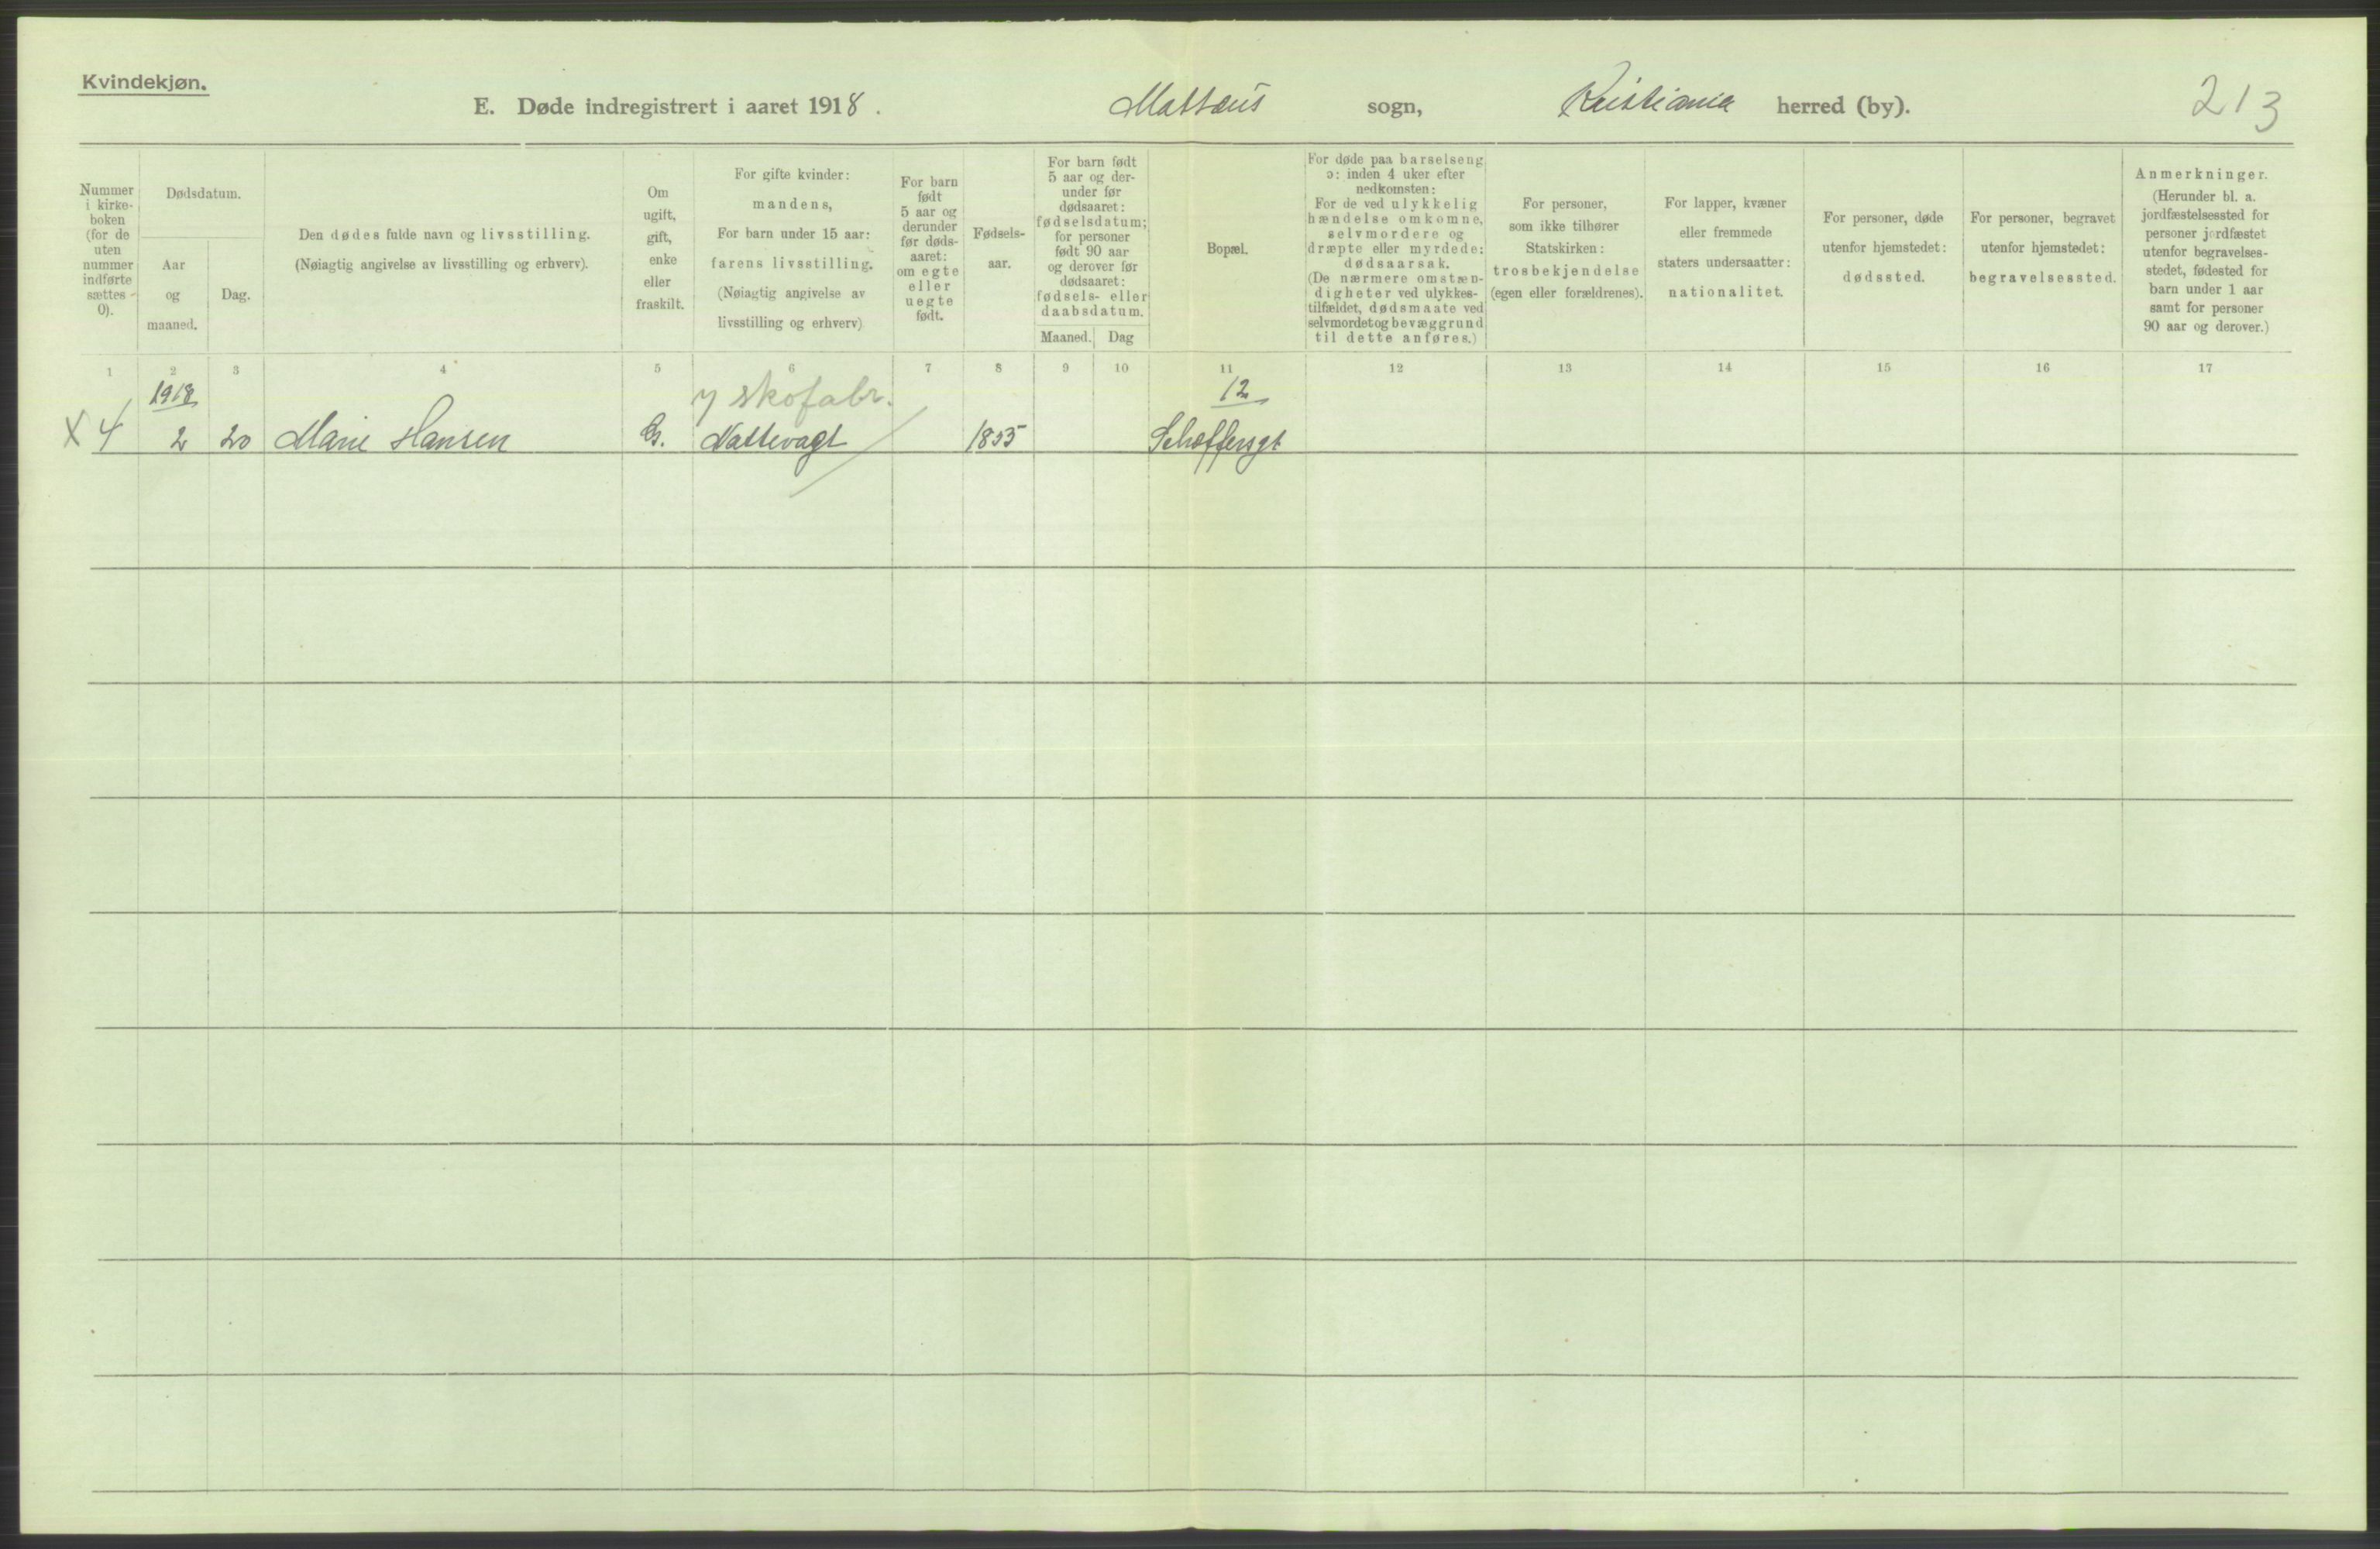 Kvindekjøn.
E. Døde indregistrert i aaret 1918. Mattæus sogn, Kristiania herred (by). 213
Nummer
i kirke-
boken
(for de
uten
nummer
indførte
sættes
0).
Dødsdatum.
Aar
og
maaned.
Dag.
Den dødes fulde navn og livsstilling.
(Nøiagtig angivelse av livsstilling og erhverv).
Om
ugift,
gift,
enke
eller
fraskilt.
For gifte kvinder:
mandens,
For barn under 15 aar:
farens livsstilling.
(Nøiagtig angivelse av
livsstilling og erhverv)
For barn
født
5 aar og
derunder
før døds-
aaret:
om egte
eller
uegte
født.
Fødsels-
aar.
For barn født
5 aar og der-
under før
dødsaaret:
fødselsdatum;
for personer
født 90 aar
og derover før
dødsaaret:
fødsels- eller
daabsdatum.
Maaned. Dag
Bopæl.
For døde paa barselseng
ɔ: inden 4 uker efter
nedkomsten:
For de ved ulykkelig
hændelse omkomne,
selvmordere og
dræpte eller myrdede:
dødsaarsak.
(De nærmere omstæn-
digheter ved ulykkes-
tilfældet, dødsmaate ved
selvmordet og bevæggrund
til dette anføres.)
For personer,
som ikke tilhører
Statskirken:
trosbekjendelse
(egen eller forældrenes).
For lapper, kvæner
eller fremmede
staters undersaatter:
nationalitet.
For personer, døde
utenfor hjemstedet:
dødssted.
For personer, begravet
utenfor hjemstedet:
begravelsessted.
Anmerkninger.
(Herunder bl. a.
jordfæstelsessted for
personer jordfæstet
utenfor begravelses-
stedet, fødested for
barn under 1 aar
samt for personer
90 aar og derover.)
1 2 3 4 5 6 7 8 9 10 11 12 13 14 15 16 17
1918 skofabr. 12
X 4 2 20 Marie Hansen G. Nattevagt 1855 Schæffersgt